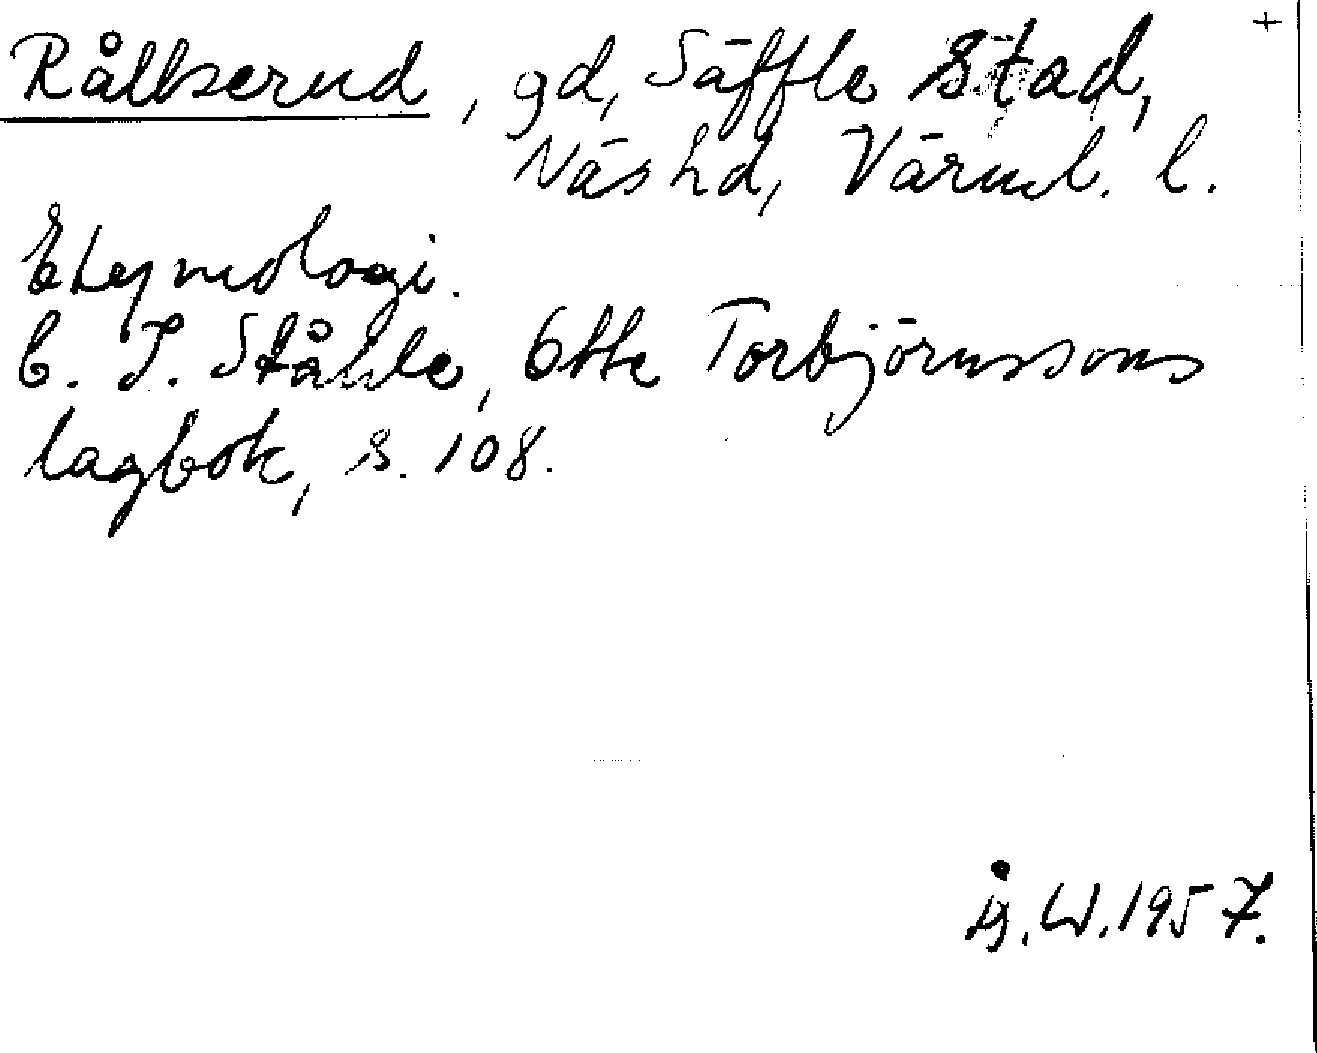 +
Rålserud, gd, Säffle stad,
Näs hd, Värml. l.
Etymologi.
C. I. Ståhle, Otte Torbjörnssons
lagbok, s. 108.
Å.W.1957.